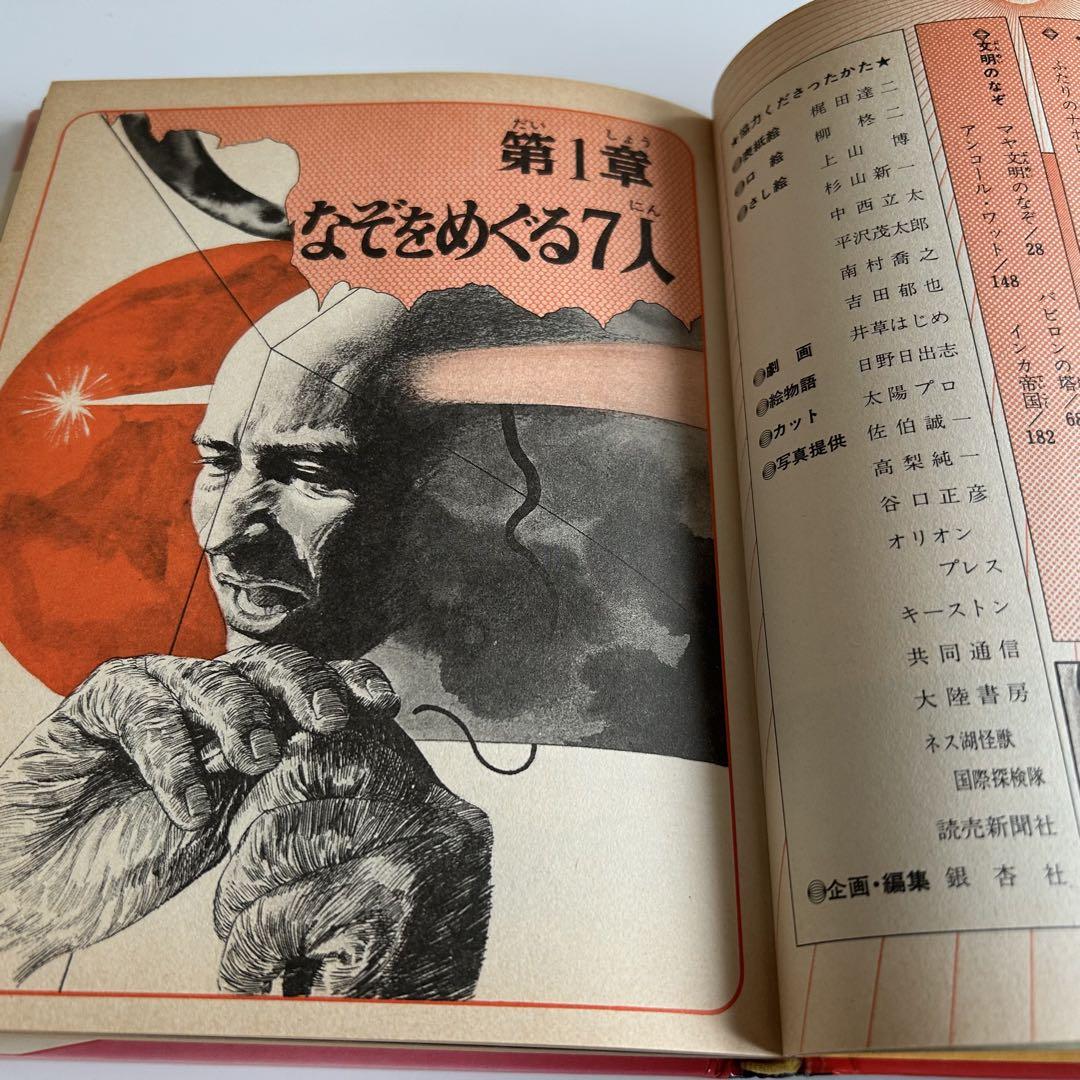 第1章
だい しょう
なぞをめぐる7人
にん
★協力くださったかた★
表紙絵 梶田達二
口絵 柳柊二
さし絵 上山博
杉山新一
中西立太
平沢茂太郎
南村喬之
吉田郁也
井草はじめ
劇画 日野日出志
絵物語 太陽プロ
カット 佐伯誠一
写真提供 高梨純一
谷口正彦
オリオン
プレス
キーストン
共同通信
大陸書房
ネス湖怪獣
国際探検隊
読売新聞社
企画・編集 銀杏社
文明のなぞ
マヤ文明のなぞ/28
バビロンの塔/68
アンコール・ワット/148
インカ帝国/182
ふたりのナポ